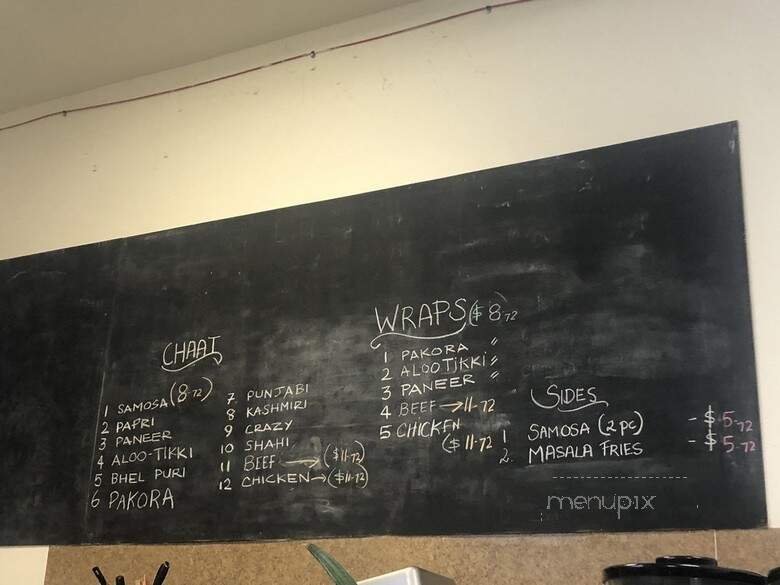 CHAAT
1 SAMOSA (8.72)
2 PAPRI
3 PANEER
4 ALOO-TIKKI
5 BHEL PURI
6 PAKORA
7. PUNJABI
8 KASHMIRI
9 CRAZY
10 SHAHI
11 BEEF → ($11.72)
12 CHICKEN → ($11.72)
WRAPS ($8.72)
1 PAKORA "
2 ALOO TIKKI "
3 PANEER "
4 BEEF → 11.72
5 CHICKEN
($11.72
SIDES
1 SAMOSA (2 pc) - $5.72
2. MASALA FRIES - $5.72
menupix